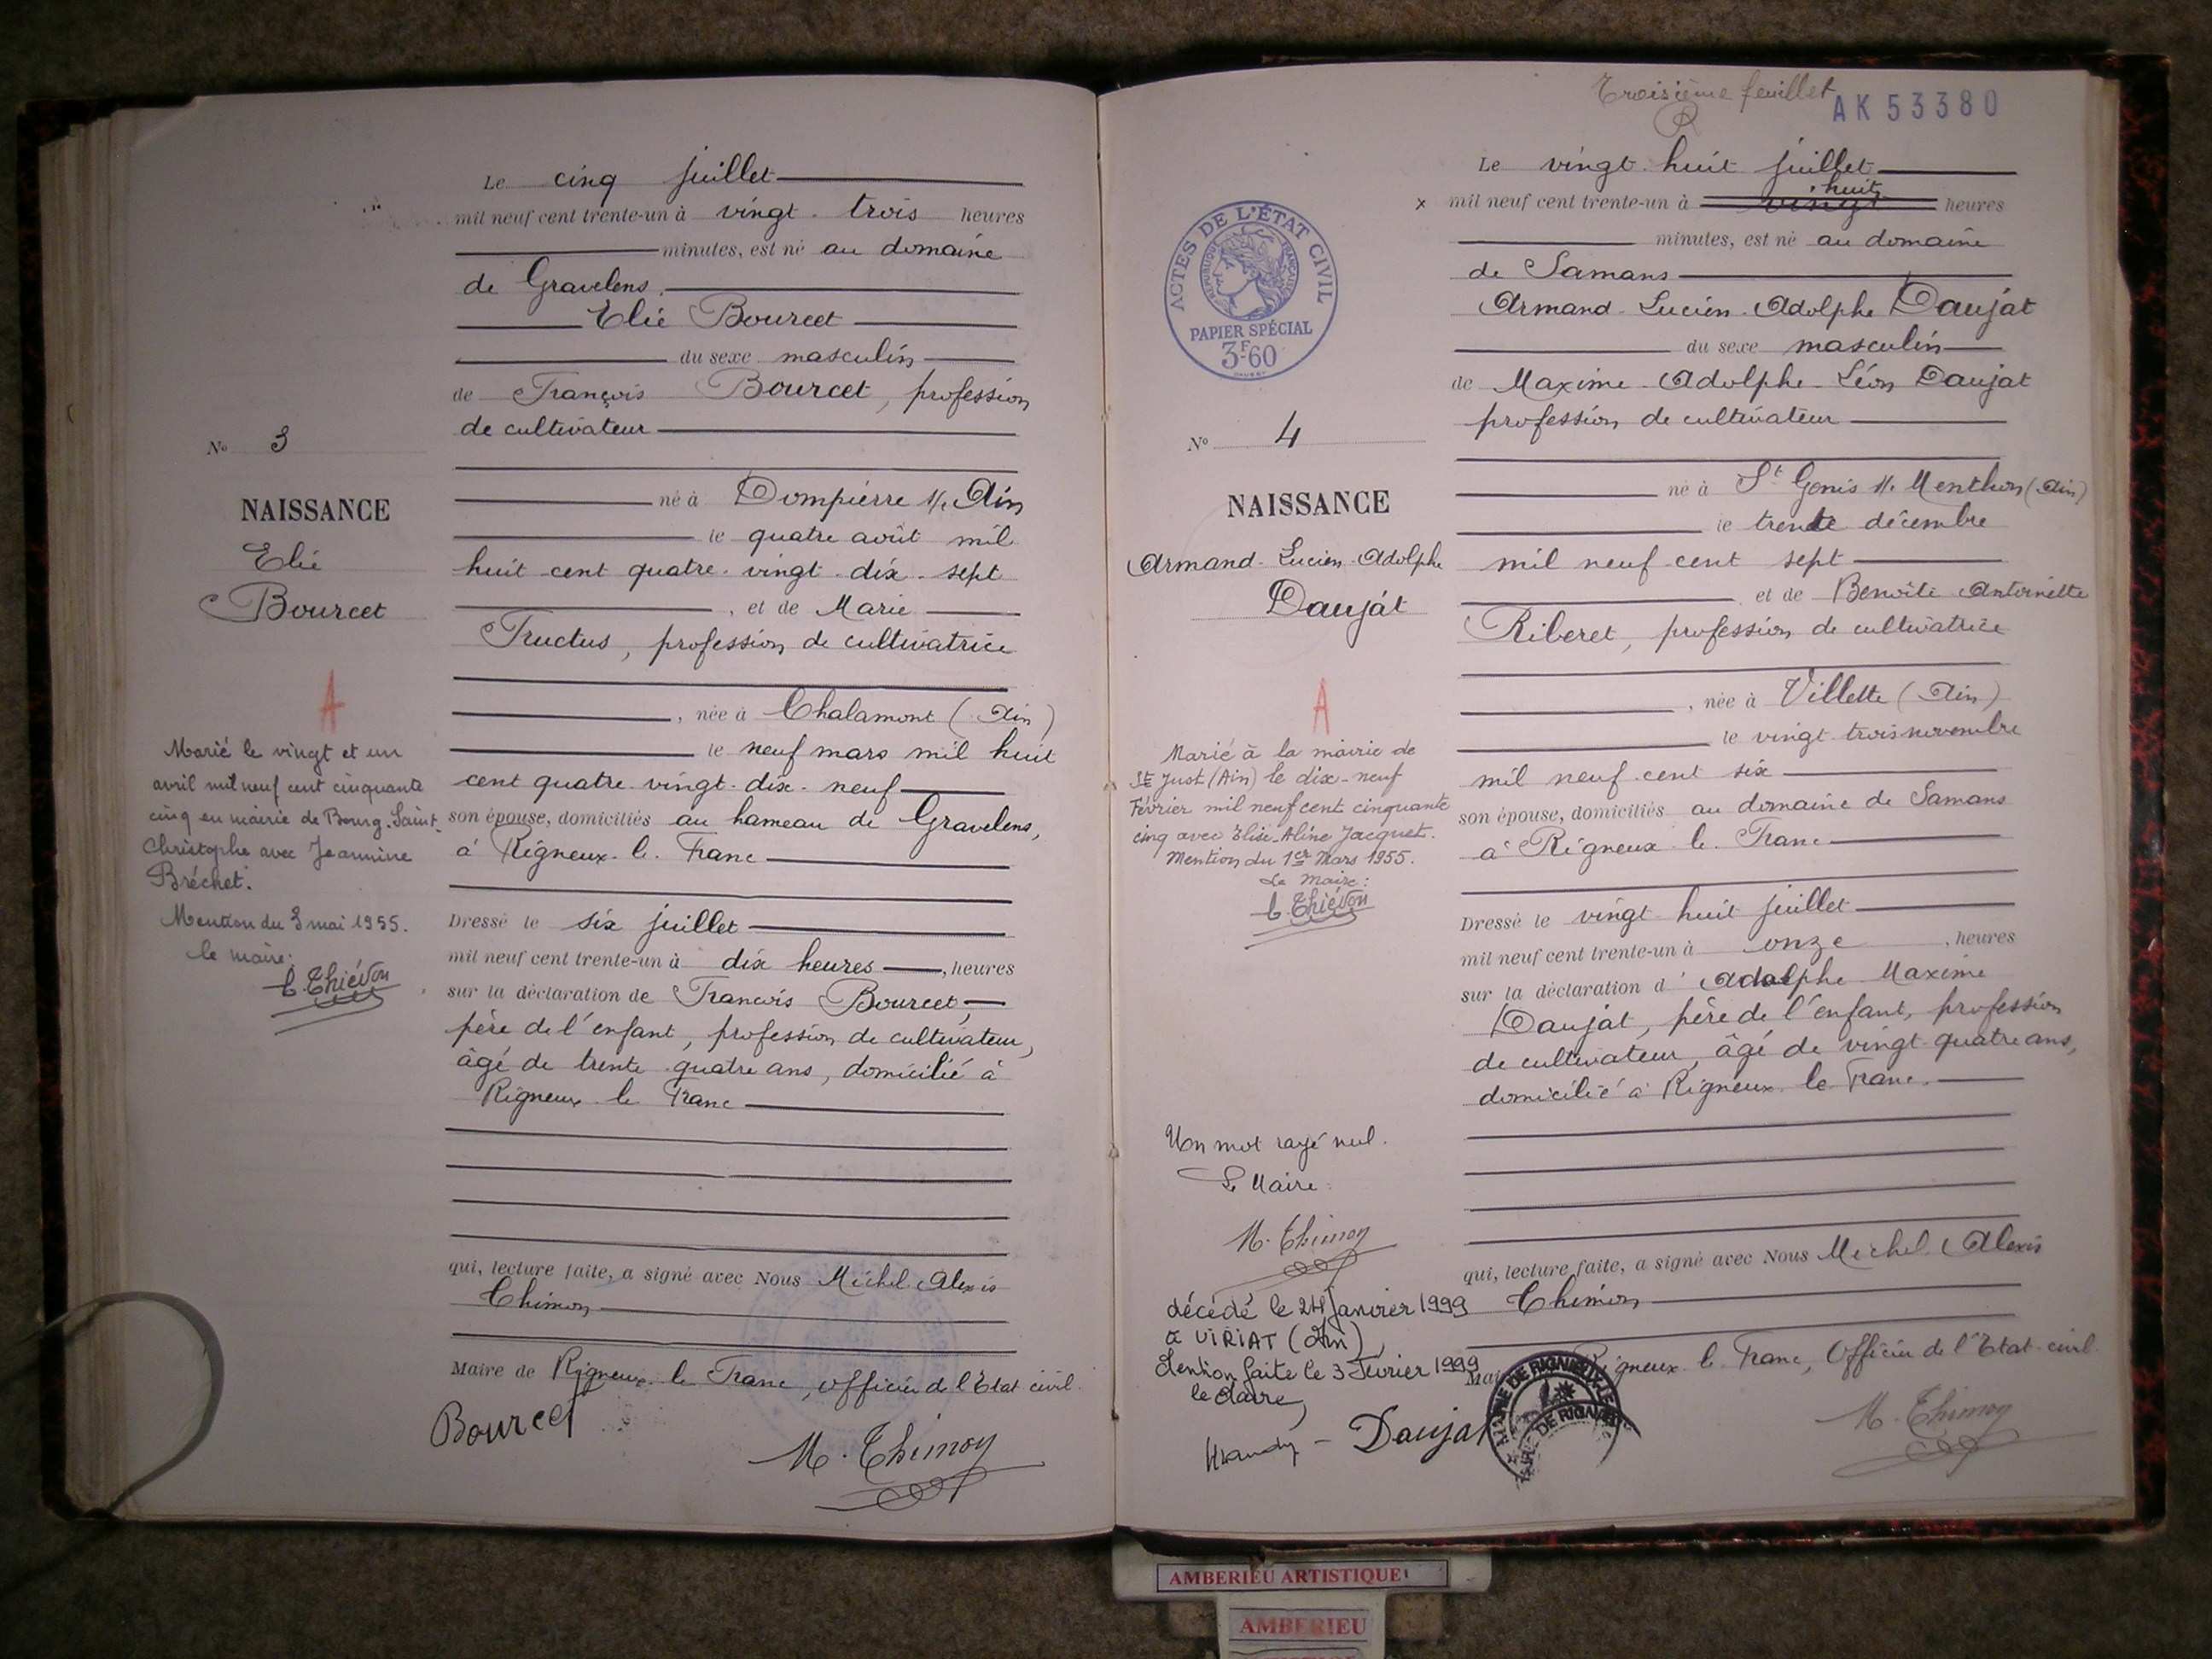 Le cinq juillet
mil neuf cent trente-un à vingt-trois heures
minutes, est né au domaine
de Gravelens.
Elie Bourcet
du sexe masculin
de François Bourcet, profession
de cultivateur
né à Dompierre s/r Ain
le quatre août mil
huit cent quatre-vingt-dix-sept
, et de Marie
Tructus, profession de cultivatrice
, née à Chalamont (Ain)
le neuf mars mil huit
cent quatre-vingt-dix-neuf
son épouse, domiciliés au hameau de Gravelens,
à Rigneux-le-Franc
Dressé le six juillet
mil neuf cent trente-un à dix heures, heures
sur la déclaration de François Bourcet,
père de l'enfant, profession de cultivateur,
âgé de trente-quatre ans, domicilié à
Rigneux-le-Franc
qui, lecture faite, a signé avec Nous Michel-Alexis
Thimon
Maire de Rigneux-le-Franc, officier de l'Etat civil.
Bourcet
M. Thimon
No 3
NAISSANCE
Elie
Bourcet
A
Marié le vingt et un
avril mil neuf cent cinquante
cinq en mairie de Bourg-Saint-
Christophe avec Jeannine
Bréchet.
Mention du 3 mai 1955.
le maire:
Troisième feuillet
AK 53380
Le vingt-huit juillet
huit
x mil neuf cent trente-un à vingt heures
minutes, est né au domaine
de Samans
Armand-Lucien-Adolphe Daujat
du sexe masculin
de Maxime-Adolphe-Léon Daujat
profession de cultivateur
né à St Genis s/r Menthon (Ain)
le trente décembre
mil neuf cent sept
et de Benoîte Antoinette
Riberet, profession de cultivatrice
, née à Villette (Ain)
le vingt-trois novembre
mil neuf cent six
son épouse, domiciliés au domaine de Samans
à Rigneux-le-Franc
Dressé le vingt-huit juillet
mil neuf cent trente-un à onze, heures
sur la déclaration d'Adolphe Maxime
Daujat, père de l'enfant, profession
de cultivateur, âgé de vingt-quatre ans,
domicilié à Rigneux-le-Franc.
qui, lecture faite, a signé avec Nous Michel-Alexis
Thimon
Rigneux-le-Franc, Officier de l'Etat-civil.
M. Thimon
ACTES DE L'ÉTAT CIVIL
RÉPUBLIQUE FRANÇAISE
PAPIER SPÉCIAL
3F60
No 4
NAISSANCE
Armand-Lucien-Adolphe
Daujat
A
Marié à la mairie de
St Just (Ain) le dix-neuf
Février mil neuf cent cinquante
cinq avec Elise-Aline Jacquet.
Mention du 1er Mars 1955.
Le maire:
Un mot rayé nul.
Le Maire
M. Thimon
décédé le 24 Janvier 1999
a VIRIAT (Ain)
Mention faite le 3 Février 1999
le Maire,
Daujat
MAIRIE DE RIGNIEUX-LE
AMBERIEU ARTISTIQUE
AMBERIEU